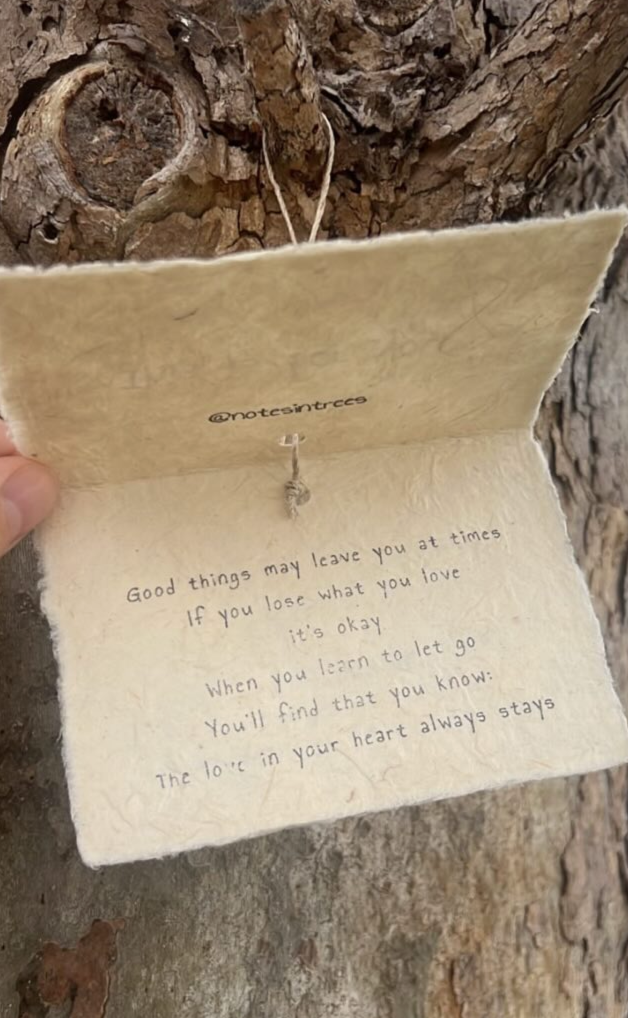 @notesintrees
Good things may leave you at times
If you lose what you love
it's okay
When you learn to let go
You'll find that you know:
The love in your heart always stays